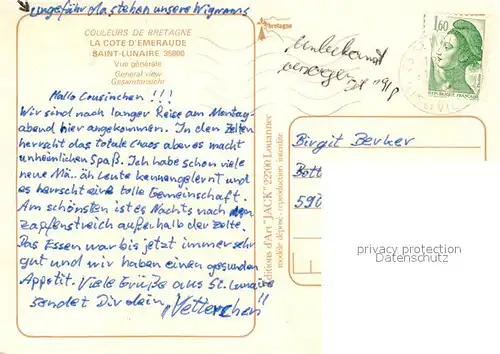 ungefähr da stehen unsere Wigwams
COULEURS DE BRETAGNE
LA COTE D'EMERAUDE
SAINT-LUNAIRE 35800
Vue générale
General view
Gesamtansicht
Hallo Cousinchen !!!
Wir sind nach langer Reise am Montag-
abend hier angekommen. In den Zelten
herrscht das totale Chaos aber es macht
unheimlichen Spaß. Ich habe schon viele
neue Mä.. äh Leute kennengelernt und
es herrscht eine tolle Gemeinschaft.
Am schönsten ist es Nachts nach dem
Zapfenstreich außerhalb der Zelte.
Das Essen war bis jetzt immer sehr
gut und wir haben einen gesunden
Appetit. Viele Grüße aus St. Lunaire
sendet Dir dein „Vetterchen"!!
bretagne
Editions d'Art "JACK" 22700 Louannec
modèle déposé - reproduction interdite
Unbekannt
verzogen
1,60
REPUBLIQUE FRANCAISE
Birgit Berker
Bott
590
privacy protection
Datenschutz